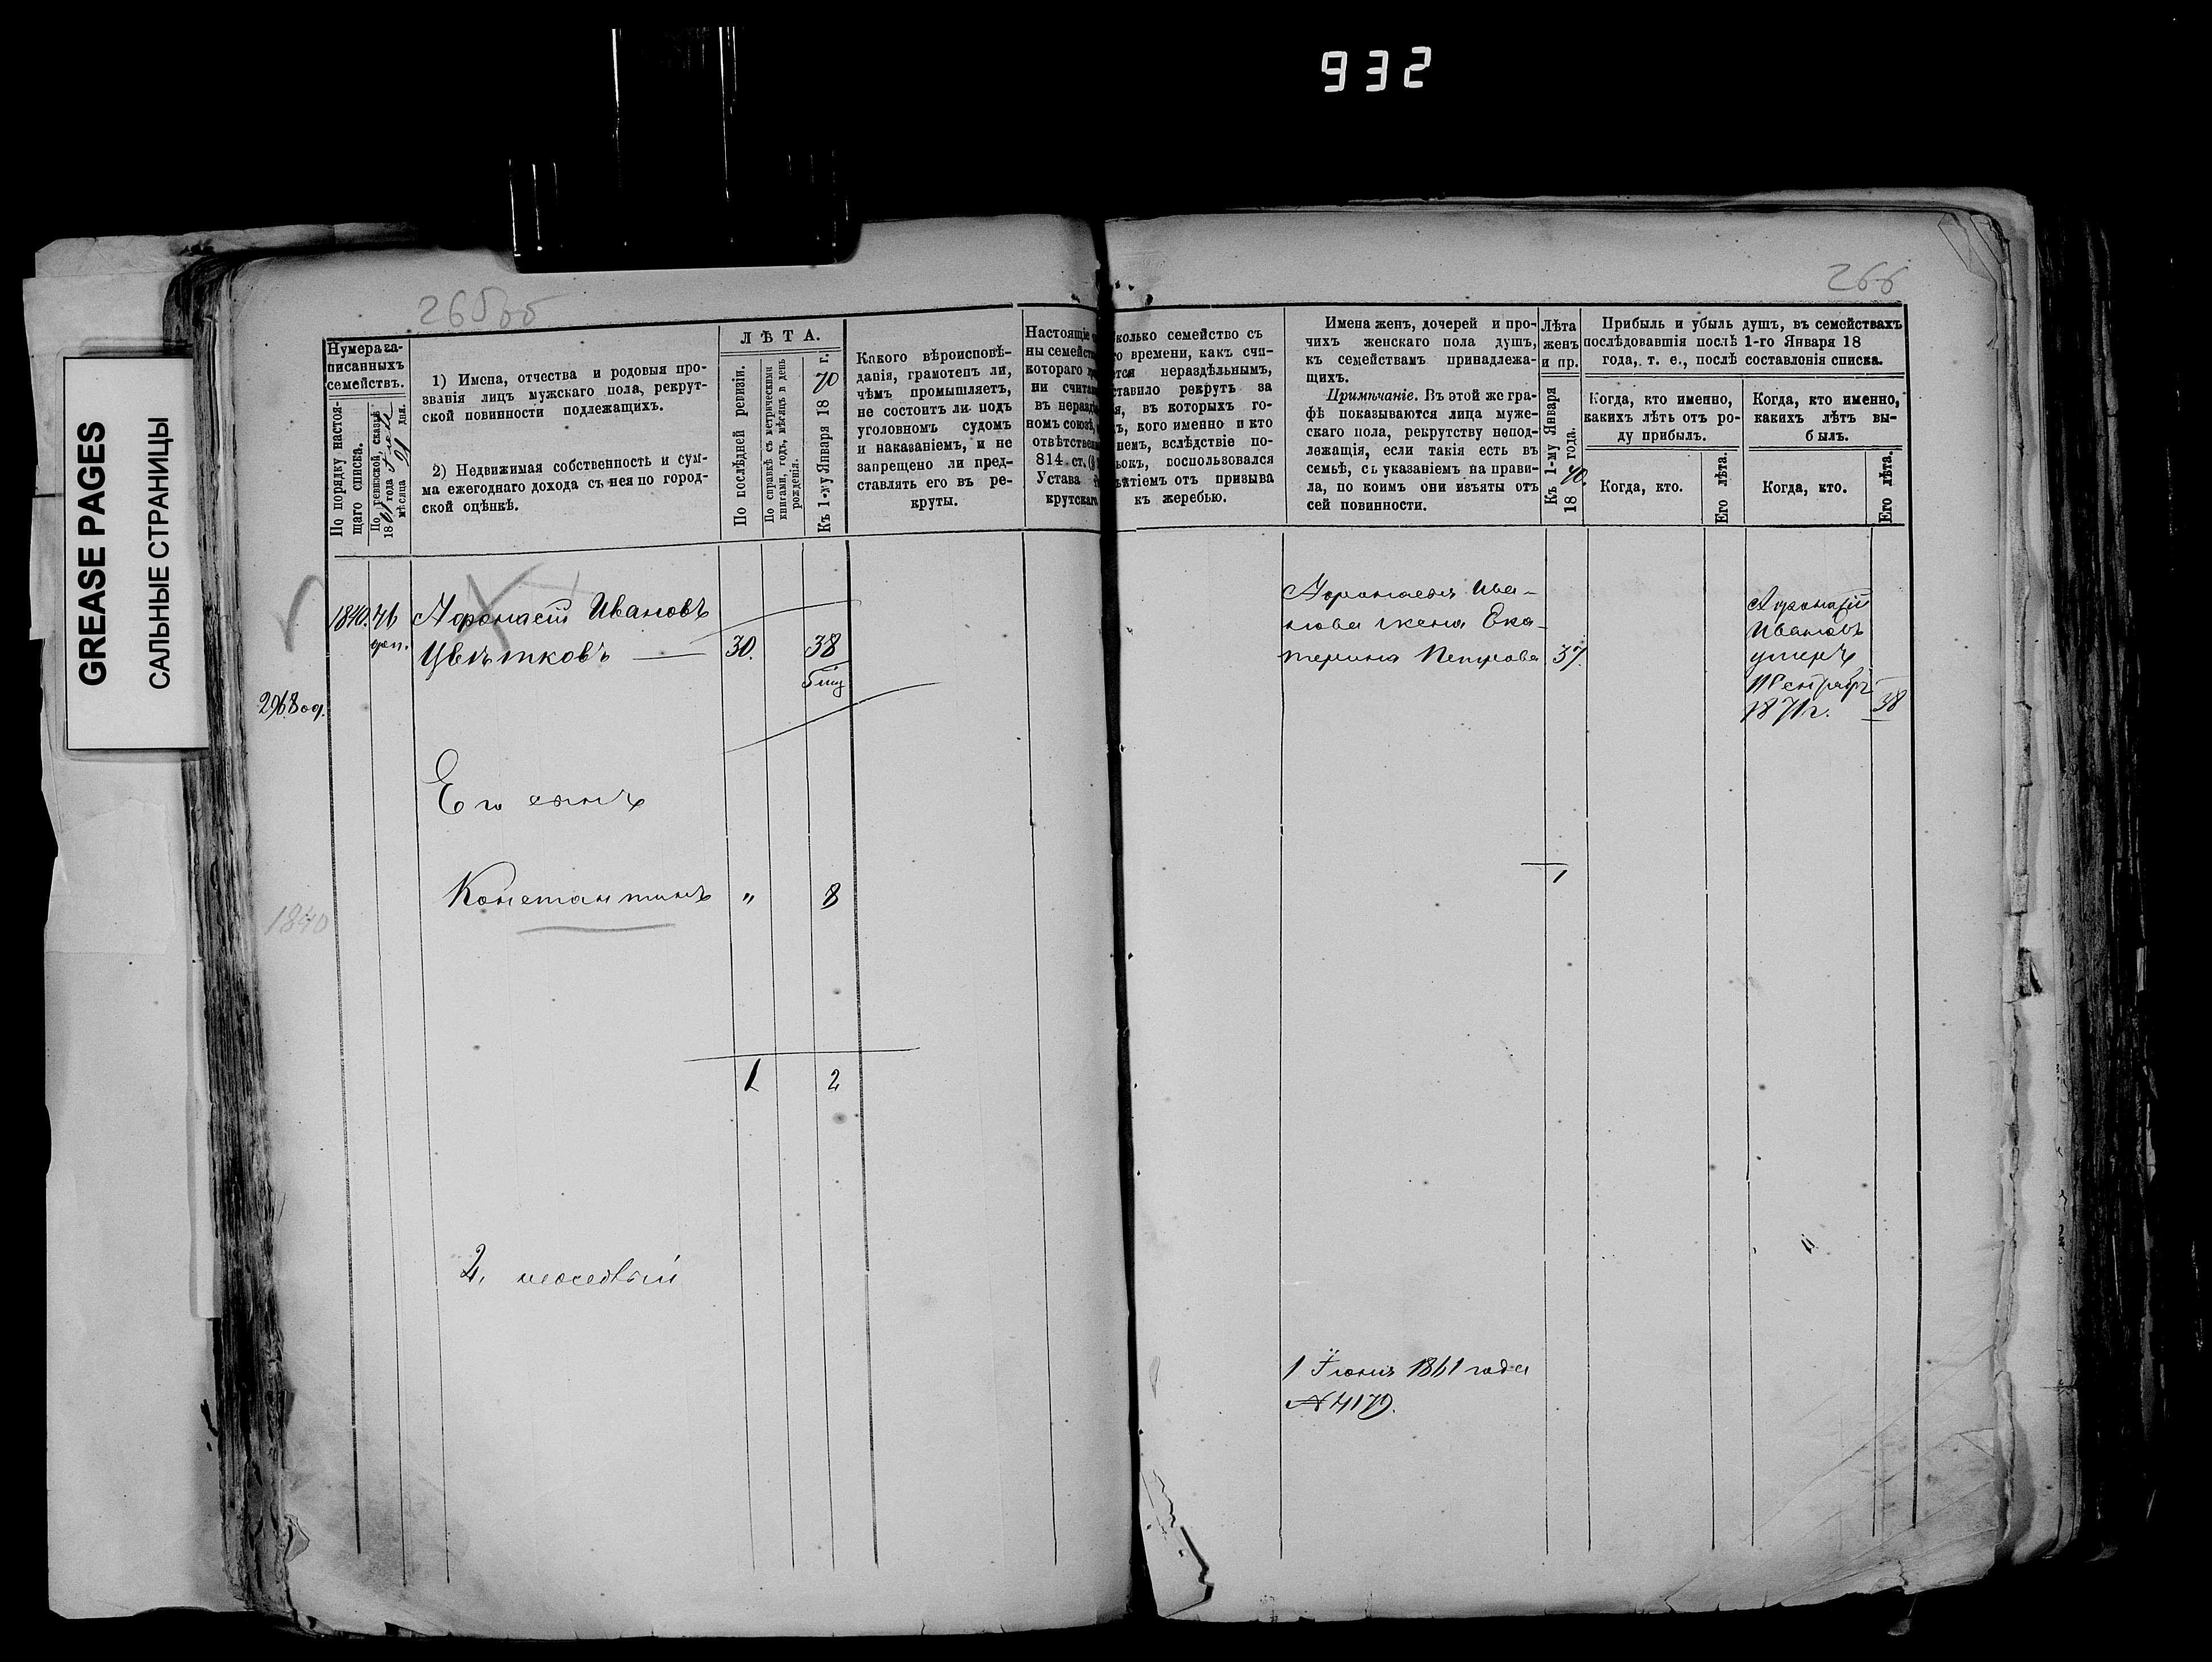 932
GREASE PAGES
САЛЬНЫЕ СТРАНИЦЫ
265об
266
Нумера за-
писанныхъ
семействъ.
По порядку настоя-
щаго списка.
По ревизской сказкѣ
18 года
мѣсяца дня.
1) Имена, отчества и родовыя про-
званія лицъ мужскаго пола, рекрут-
ской повинности подлежащихъ.
2) Недвижимая собственность и сум-
ма ежегоднаго дохода съ нея по город-
ской оцѣнкѣ.
ЛѢТА.
По послѣдней ревизіи.
По справкѣ съ метрическими
книгами, годъ, мѣсяцъ и день
рожденія.
Къ 1-му Января 1870 г.
Какого вѣроисповѣ-
данія, грамотенъ ли,
чѣмъ промышляетъ,
не состоитъ ли подъ
уголовномъ судомъ
и наказаніемъ, и не
запрещено ли пред-
ставлять его въ ре-
круты.
Настоящіе
ны семейст
котораго
ни счита
въ нераз
номъ союзѣ,
отвѣтствен
814 ст.
Устава
крутскаго
сколько семейство съ
го времени, какъ счи-
тся нераздѣльнымъ,
ставило рекрутъ за
я, въ которыхъ го-
ъ, кого именно и кто
немъ, вслѣдствіе по-
ьокъ, воспользовался
ѣтіемъ отъ призыва
къ жеребью.
Имена женъ, дочерей и про-
чихъ женскаго пола душъ,
къ семействамъ принадлежа-
щихъ.
Примѣчаніе. Въ этой же гра-
фѣ показываются лица муже-
скаго пола, рекрутству непод-
лежащія, если такія есть въ
семьѣ, съ указаніемъ на прави-
ла, по коимъ они изъяты отъ
сей повинности.
Лѣта
женъ
и пр.
Къ 1-му Января
1870. года.
Прибыль и убыль душъ, въ семействахъ
послѣдовавшія послѣ 1-го Января 18
года, т. е., послѣ составленія списка.
Когда, кто именно,
какихъ лѣтъ отъ ро-
ду прибылъ.
Когда, кто именно,
какихъ лѣтъ вы-
былъ.
Когда, кто.
Его лѣта.
Когда, кто.
Его лѣта.
1840. 46 Афонасій Ивановъ
доп. Цвѣтковъ — 30. 38
Его сынъ
Константинъ " 8
1840
1 2
Афонасья Ива-
нова жена Ека-
терина Петрова 37.
1
Афонасій
Ивановъ
умеръ
1871г. 38
1 Іюня 1861 года
№ 4179.